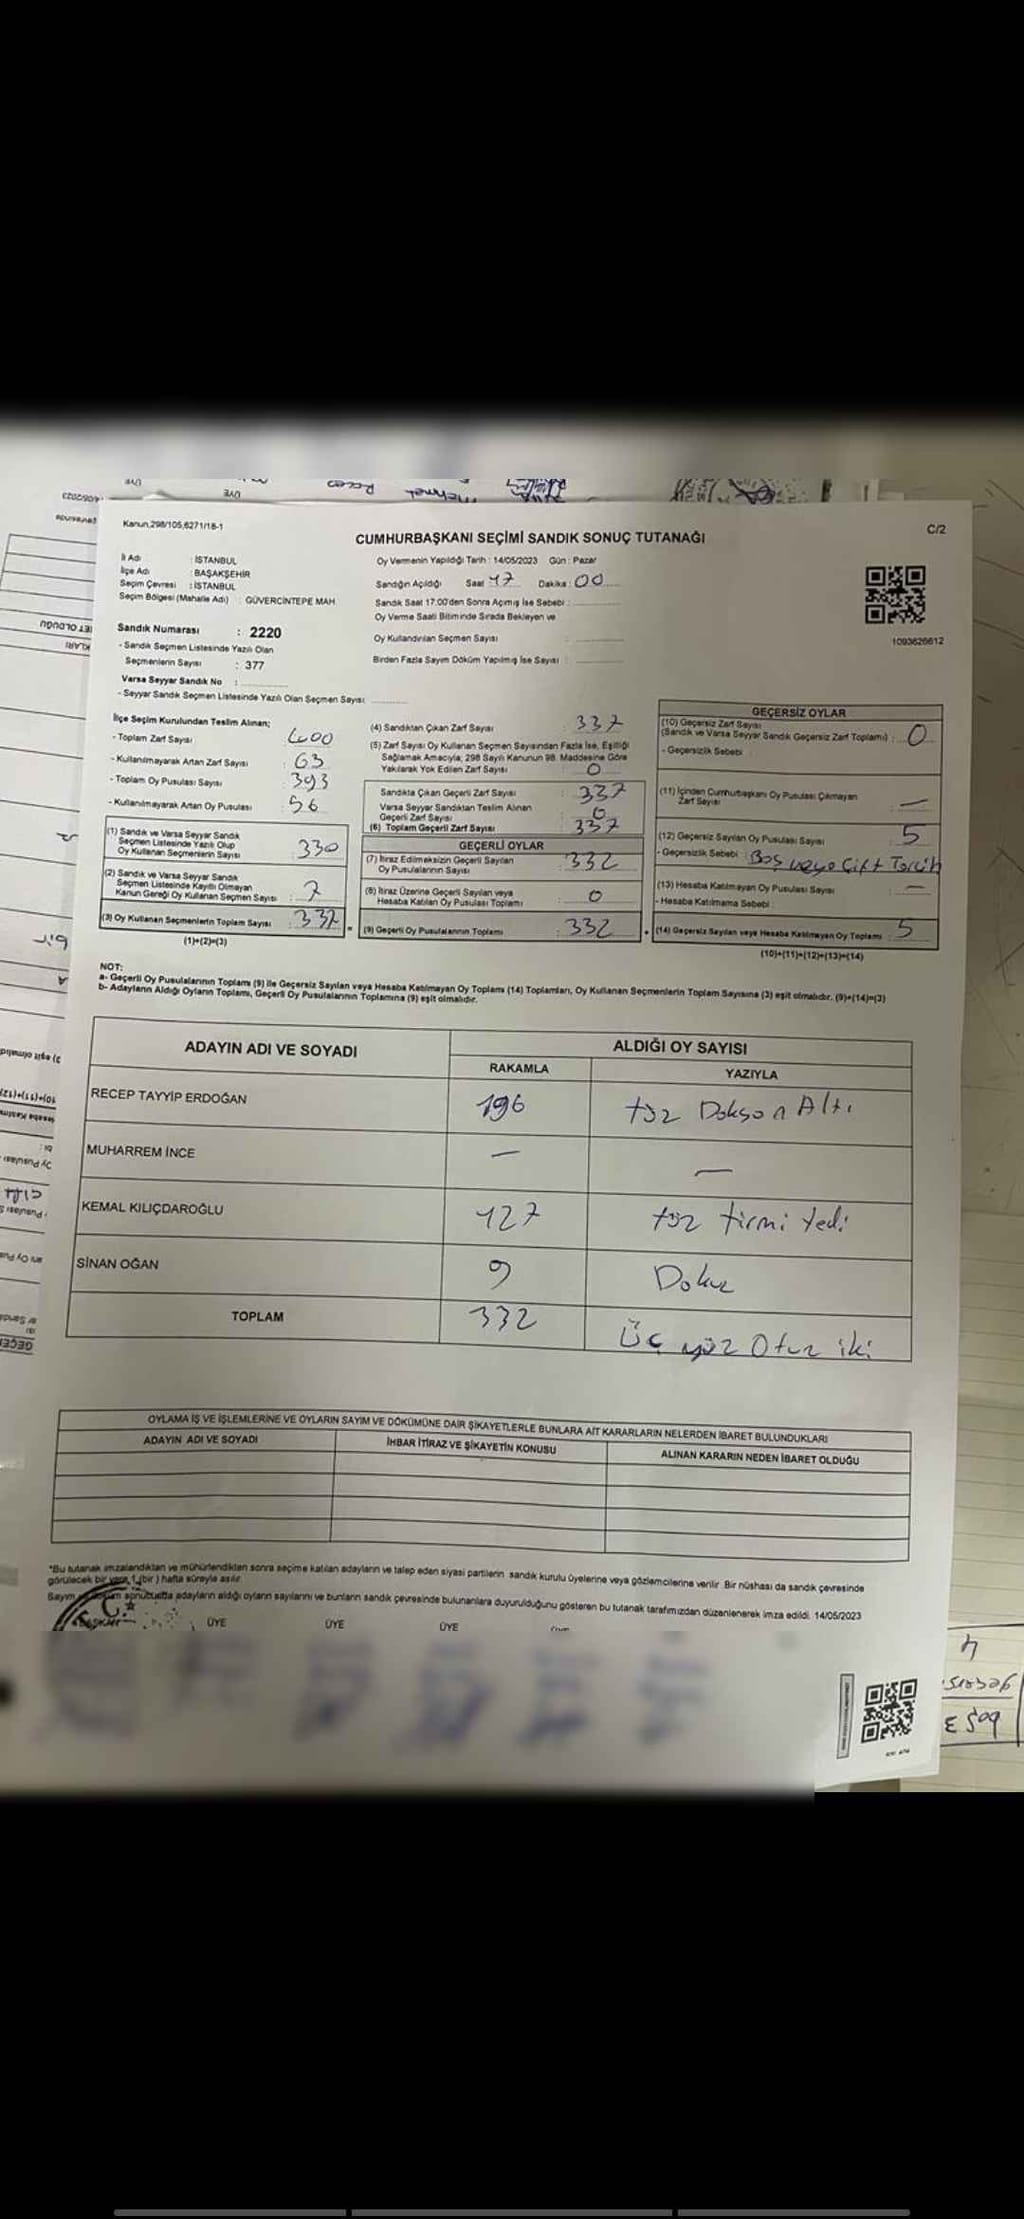 Kanun,298/105,6271/18-1
C/2
CUMHURBAŞKANI SEÇİMİ SANDIK SONUÇ TUTANAĞI
İl Adı : İSTANBUL
İlçe Adı : BAŞAKŞEHİR
Seçim Çevresi : İSTANBUL
Seçim Bölgesi (Mahalle Adı) : GÜVERCİNTEPE MAH.
Oy Vermenin Yapıldığı Tarih : 14/05/2023 Gün : Pazar
Sandığın Açıldığı Saat 17 Dakika : 00
Sandık Saat 17:00'den Sonra Açımış İse Sebebi :
Oy Verme Saati Bitiminde Sırada Bekleyen ve
Oy Kullandırılan Seçmen Sayısı :
Birden Fazla Sayım Döküm Yapılmış İse Sayısı :
1093626612
Sandık Numarası : 2220
- Sandık Seçmen Listesinde Yazılı Olan
Seçmenlerin Sayısı : 377
Varsa Seyyar Sandık No :
- Seyyar Sandık Seçmen Listesinde Yazılı Olan Seçmen Sayısı:
İlçe Seçim Kurulundan Teslim Alınan;
- Toplam Zarf Sayısı : 400
- Kullanılmayarak Artan Zarf Sayısı : 63
- Toplam Oy Pusulası Sayısı : 393
- Kullanılmayarak Artan Oy Pusulası : 56
(1) Sandık ve Varsa Seyyar Sandık
Seçmen Listesinde Yazılı Olup
Oy Kullanan Seçmenlerin Sayısı : 330
(2) Sandık ve Varsa Seyyar Sandık
Seçmen Listesinde Kayıtlı Olmayan
Kanun Gereği Oy Kullanan Seçmen Sayısı : 7
(3) Oy Kullanan Seçmenlerin Toplam Sayısı : 337
(1)+(2)=(3)
(4) Sandıktan Çıkan Zarf Sayısı : 337
(5) Zarf Sayısı Oy Kullanan Seçmen Sayısından Fazla İse, Eşitliği
Sağlamak Amacıyla; 298 Sayılı Kanunun 98. Maddesine Göre
Yakılarak Yok Edilen Zarf Sayısı : 0
Sandıkta Çıkan Geçerli Zarf Sayısı : 337
Varsa Seyyar Sandıktan Teslim Alınan
Geçerli Zarf Sayısı : 0
(6) Toplam Geçerli Zarf Sayısı : 337
GEÇERLİ OYLAR
(7) İtiraz Edilmeksizin Geçerli Sayılan
Oy Pusulalarının Sayısı : 332
(8) İtiraz Üzerine Geçerli Sayılan veya
Hesaba Katılan Oy Pusulası Toplamı : 0
= (9) Geçerli Oy Pusulalarının Toplamı : 332
GEÇERSİZ OYLAR
(10) Geçersiz Zarf Sayısı
(Sandık ve Varsa Seyyar Sandık Geçersiz Zarf Toplamı) : 0
- Geçersizlik Sebebi :
(11) İçinden Cumhurbaşkanı Oy Pusulası Çıkmayan
Zarf Sayısı : —
(12) Geçersiz Sayılan Oy Pusulası Sayısı : 5
- Geçersizlik Sebebi : Boş veya Çift Tercih
(13) Hesaba Katılmayan Oy Pusulası Sayısı : —
- Hesaba Katılmama Sebebi :
+ (14) Geçersiz Sayılan veya Hesaba Katılmayan Oy Toplamı : 5
(10)+(11)+(12)+(13)=(14)
NOT:
a- Geçerli Oy Pusulalarının Toplamı (9) ile Geçersiz Sayılan veya Hesaba Katılmayan Oy Toplamı (14) Toplamları, Oy Kullanan Seçmenlerin Toplam Sayısına (3) eşit olmalıdır. (9)+(14)=(3)
b- Adayların Aldığı Oyların Toplamı, Geçerli Oy Pusulalarının Toplamına (9) eşit olmalıdır.
ADAYIN ADI VE SOYADI
ALDIĞI OY SAYISI
RAKAMLA YAZIYLA
RECEP TAYYİP ERDOĞAN 196 Yüz Doksan Altı
MUHARREM İNCE — —
KEMAL KILIÇDAROĞLU 127 Yüz Yirmi Yedi
SİNAN OĞAN 9 Dokuz
TOPLAM 332 Üç yüz Otuz iki
OYLAMA İŞ VE İŞLEMLERİNE VE OYLARIN SAYIM VE DÖKÜMÜNE DAİR ŞİKAYETLERLE BUNLARA AİT KARARLARIN NELERDEN İBARET BULUNDUKLARI
ADAYIN ADI VE SOYADI İHBAR İTİRAZ VE ŞİKAYETİN KONUSU ALINAN KARARIN NEDEN İBARET OLDUĞU
*Bu tutanak imzalandıktan ve mühürlendikten sonra seçime katılan adayların ve talep eden siyasi partilerin sandık kurulu üyelerine veya gözlemcilerine verilir. Bir nüshası da sandık çevresinde
görülecek bir yere 1 (bir) hafta süreyle asılır.
Sayım sonucunda adayların aldığı oyların sayılarını ve bunların sandık çevresinde bulunanlara duyurulduğunu gösteren bu tutanak tarafımızdan düzenlenerek imza edildi. 14/05/2023
BAŞKAN ÜYE ÜYE ÜYE